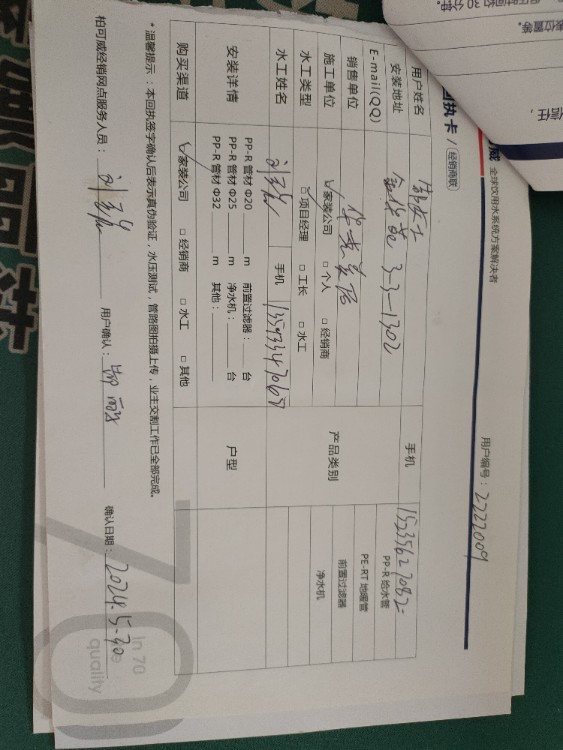 威 全球饮用水系统方案解决者
回执卡 / 经销商联
用户编号：2222009
用户姓名
手机 15235627082
安装地址 3-3-1302
E-mail(QQ)
销售单位 华光美居
产品类别
PP-R 给水管
PE-RT 地暖管
前置过滤器
净水机
施工单位 ☑家装公司 □ 个人 □ 经销商
水工类型 □ 项目经理 □ 工长 □ 水工
水工姓名
手机
安装详情
PP-R 管材 Φ20 m 前置过滤器： 台
PP-R 管材 Φ25 m 净水机： 台
PP-R 管材 Φ32 m 其他：
户型
购买渠道 ☑家装公司 □ 经销商 □ 水工 □ 其他
* 温馨提示：本回执签字确认后表示真伪验证，水压测试，管路图拍摄上传，业主交割工作已全部完成。
柏可威经销网点服务人员：
用户确认：
确认日期：2024.5.30
70
in 70
quality
30 分钟。
位置等。
信任，